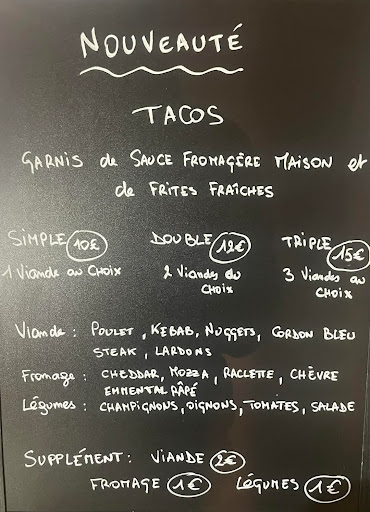 NOUVEAUTÉ
TACOS
GARNIS de SAUCE FROMAGÈRE MAISON et
de FRITES FRAÎCHES
SIMPLE 10€ DOUBLE 12€ TRIPLE 15€
1 Viande au CHOIX 2 Viandes au CHOIX 3 Viandes au CHOIX
Viande : POULET, KEBAB, NUGGETS, CORDON BLEU
STEAK, LARDONS
Fromage : CHEDDAR, MOZZA, RACLETTE, CHÈVRE
EMMENTAL RÂPÉ
Légumes : CHAMPIGNONS, OIGNONS, TOMATES, SALADE
SUPPLÉMENT : VIANDE 2€
FROMAGE 1€ LÉGUMES 1€